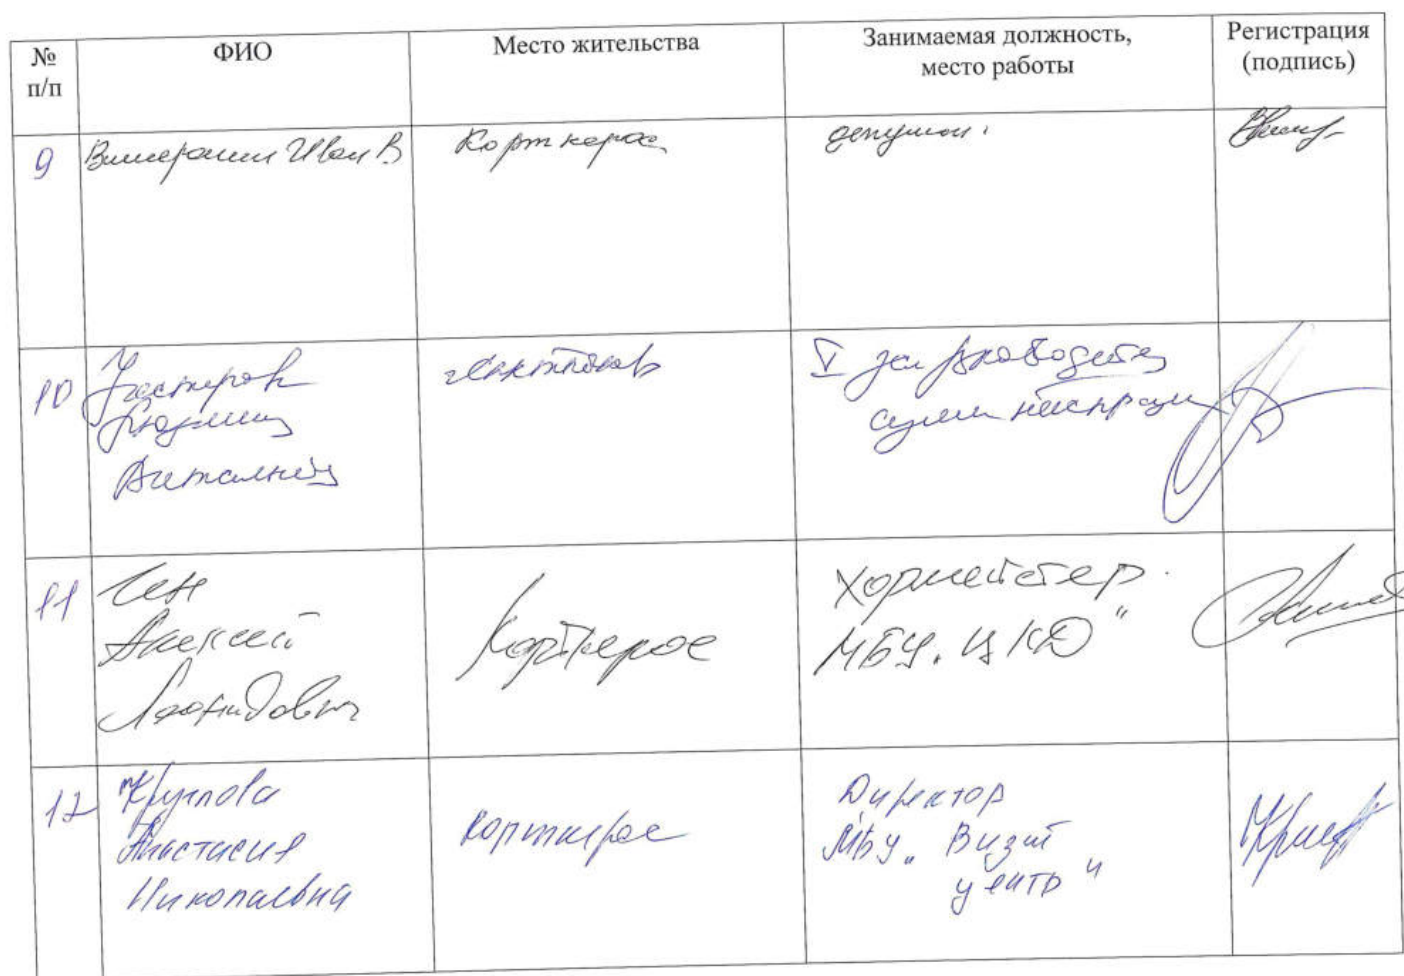 № п/п
ФИО
Место жительства
Занимаемая должность, место работы
Регистрация (подпись)
9
Иван В
Корткерос
депутат.
10
Людмила
Витальевна
11
Чен
Алексей
Леонидович
Корткерос
Хормейстер.
МБУ "ЦКД"
12
Круглова
Анастасия
Николаевна
Корткерос
Директор
МБУ „Визит
центр"